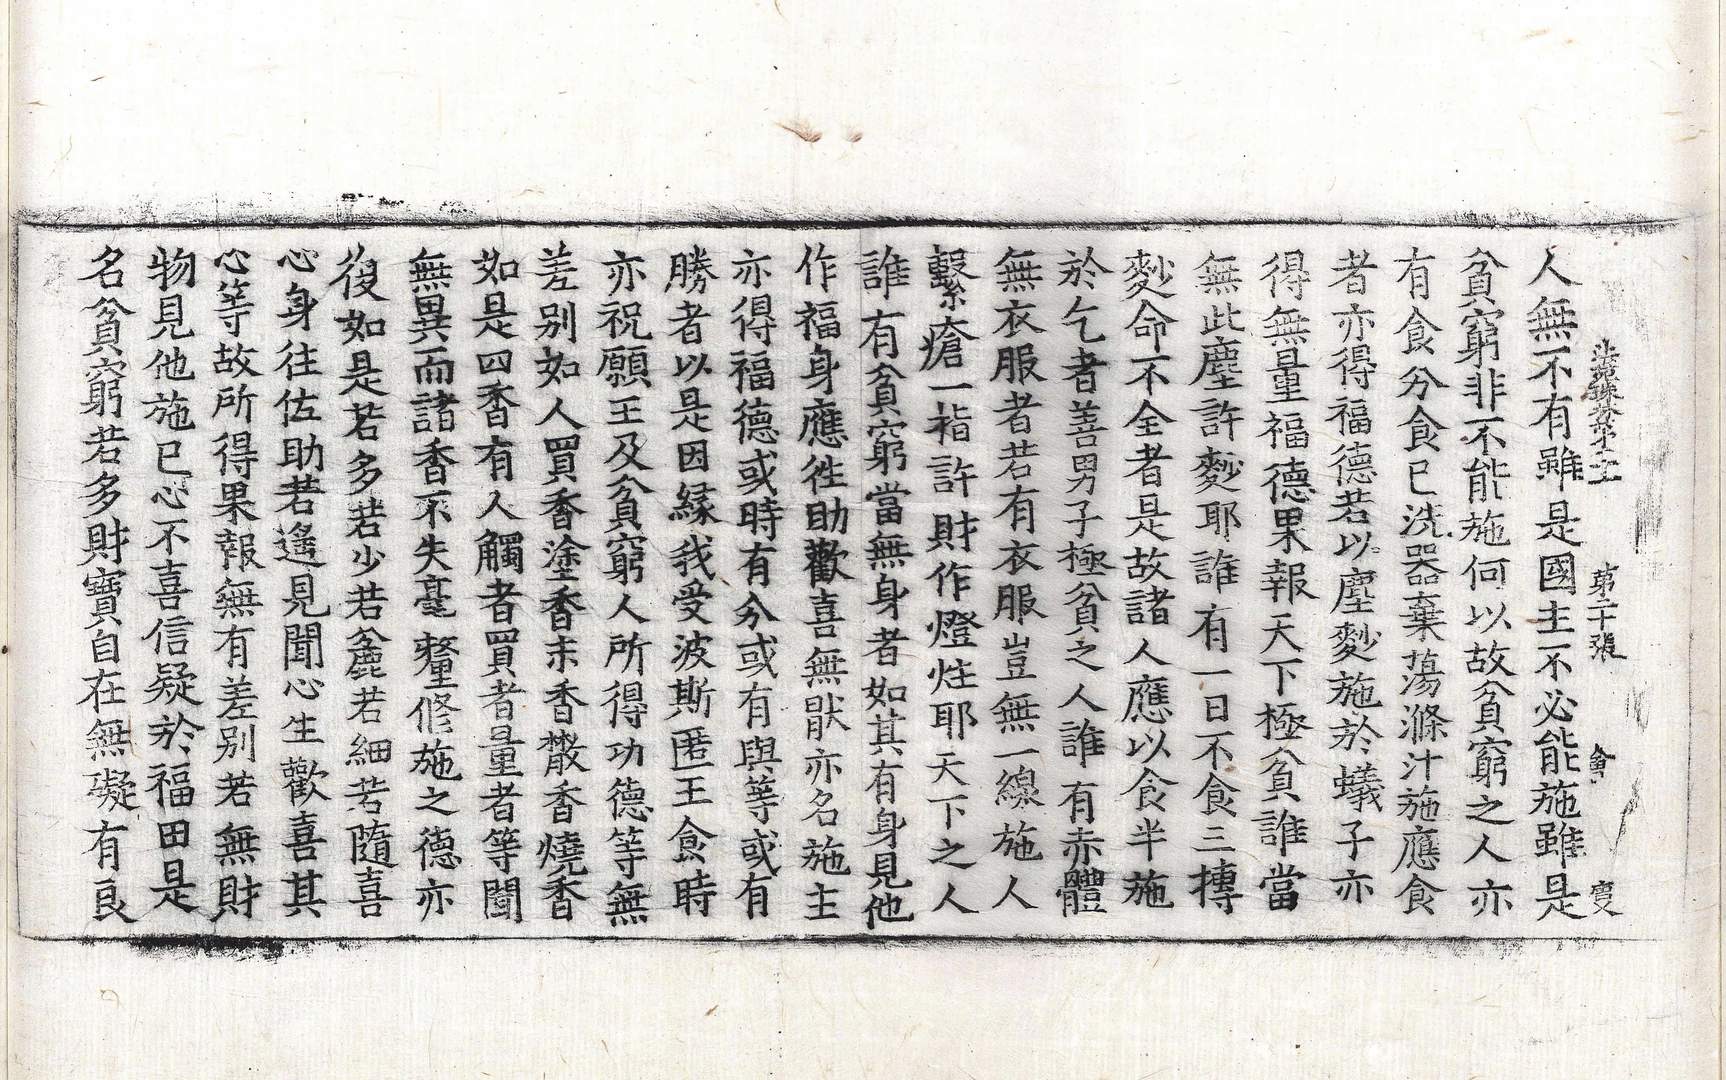 法苑珠林第八十 第二十張 實
人無不有雖是國主不必能施雖是
貧窮非不能施何以故貧窮之人亦
有食分食已洗器棄蕩滌汁施應食
者亦得福德若以塵麨施於蟻子亦
得無量福德果報天下極貧誰當
無此塵許麨耶誰有一日不食三摶
麨命不全者是故諸人應以食半施
於乞者善男子極貧之人誰有赤體
無衣服者若有衣服豈無一線施人
繫瘡一指許財作燈炷耶天下之人
誰有貧窮當無身者如其有身見他
作福身應往助歡喜無猒亦名施主
亦得福德或時有分或有與等或有
勝者以是因緣我受波斯匿王食時
亦祝願王及貧窮人所得功德等無
差別如人買香塗香末香散香燒香
如是四香有人觸者買者量者等聞
無異而諸香不失毫釐修施之德亦
復如是若多若少若麁若細若隨喜
心身往佐助若遙見聞心生歡喜其
心等故所得果報無有差別若無財
物見他施已心不喜信疑於福田是
名貧窮若多財寶自在無礙有良